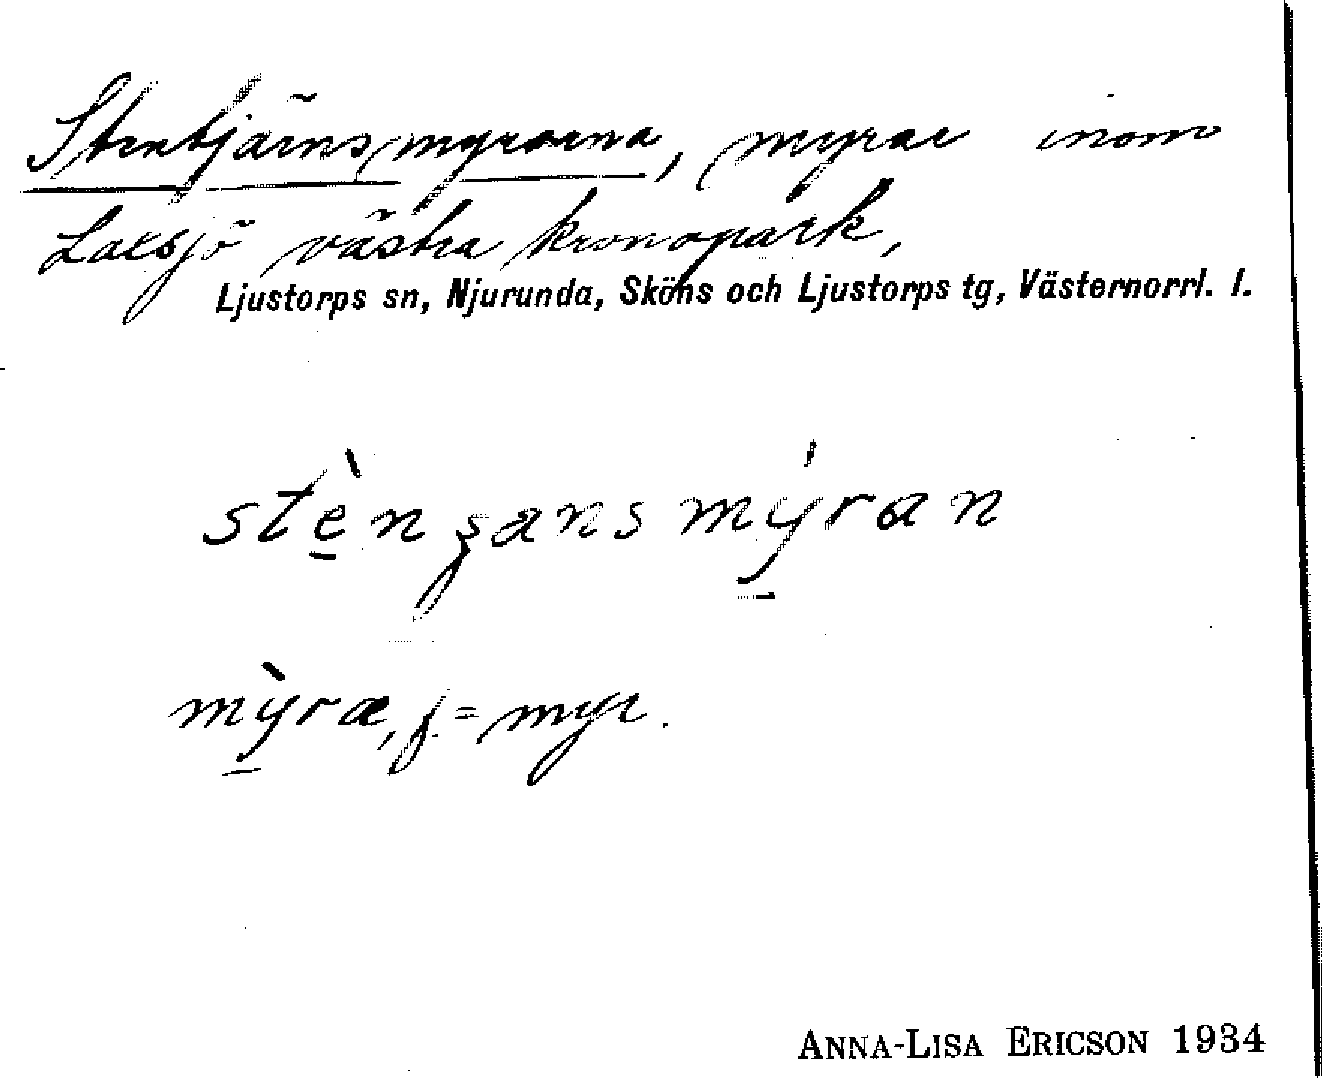 Stentjärnsmyrarna, myrar inom
Laxsjö västra kronopark,
Ljustorps sn, Njurunda, Sköns och Ljustorps tg, Västernorrl. l.
stè̱nʂans mý̱ran
mỳ̱ræ, f. = myr.
ANNA-LISA ERICSON 1934